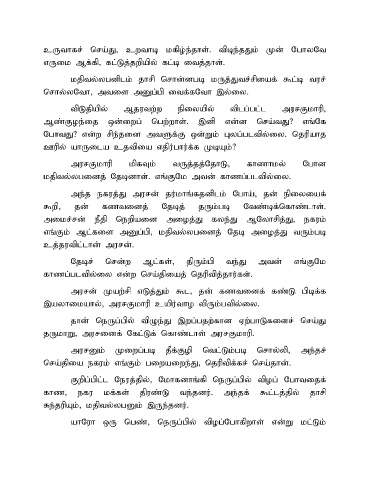 உருவாகச் செய்து, உறவாடி மகிழ்ந்தாள். விடிந்ததும் முன் போலவே
எருமை ஆக்கி, கட்டுத்தறியில் கட்டி வைத்தாள்.
மதிவல்லபனிடம் தாசி சொன்னபடி மருத்துவச்சியைக் கூட்டி வரச்
சொல்லவோ, அவளை அனுப்பி வைக்கவோ இல்லை.
விடுதியில் ஆதரவற்ற நிலையில் விடப்பட்ட அரசகுமாரி,
ஆண்குழந்தை ஒன்றைப் பெற்றாள். இனி என்ன செய்வது? எங்கே
போவது? என்ற சிந்தனை அவளுக்கு ஒன்றும் புலப்படவில்லை. தெரியாத
ஊரில் யாருடைய உதவியை எதிர்பார்க்க முடியும்?
அரசகுமாரி மிகவும் வருத்தத்தோடு, காணாமல் போன
மதிவல்லபனைத் தேடினாள். எங்குமே அவன் காணப்படவில்லை.
அந்த நகரத்து அரசன் தர்மாங்கதனிடம் போய், தன் நிலையைக்
கூறி, தன் கணவனைத் தேடித் தரும்படி வேண்டிக்கொண்டாள்.
அமைச்சன் நீதி நெறியனை அழைத்து கலந்து ஆலோசித்து, நகரம்
எங்கும் ஆட்களை அனுப்பி, மதிவல்லபனைத் தேடி அழைத்து வரும்படி
உத்தரவிட்டான் அரசன்.
தேடிச் சென்ற ஆட்கள், திரும்பி வந்து அவன் எங்குமே
காணப்படவில்லை என்ற செய்தியைத் தெரிவித்தார்கள்.
அரசன் முயற்சி எடுத்தும் கூட, தன் கணவனைக் கண்டு பிடிக்க
இயலாமையால், அரசகுமாரி உயிர்வாழ விரும்பவில்லை.
தான் நெருப்பில் விழுந்து இறப்பதற்கான ஏற்பாடுகளைச் செய்து
தருமாறு, அரசனைக் கேட்டுக் கொண்டாள் அரசகுமாரி.
அரசனும் முறைப்படி தீக்குழி வெட்டும்படி சொல்லி, அந்தச்
செய்தியை நகரம் எங்கும் பறையறைந்து, தெரிவிக்கச் செய்தாள்.
குறிப்பிட்ட நேரத்தில், மோகனாங்கி நெருப்பில் விழப் போவதைக்
காண, நகர மக்கள் திரண்டு வந்தனர். அந்தக் கூட்டத்தில் தாசி
சுந்தரியும், மதிவல்லபனும் இருந்தனர்.
யாரோ ஒரு பெண், நெருப்பில் விழப்போகிறாள் என்று மட்டும்